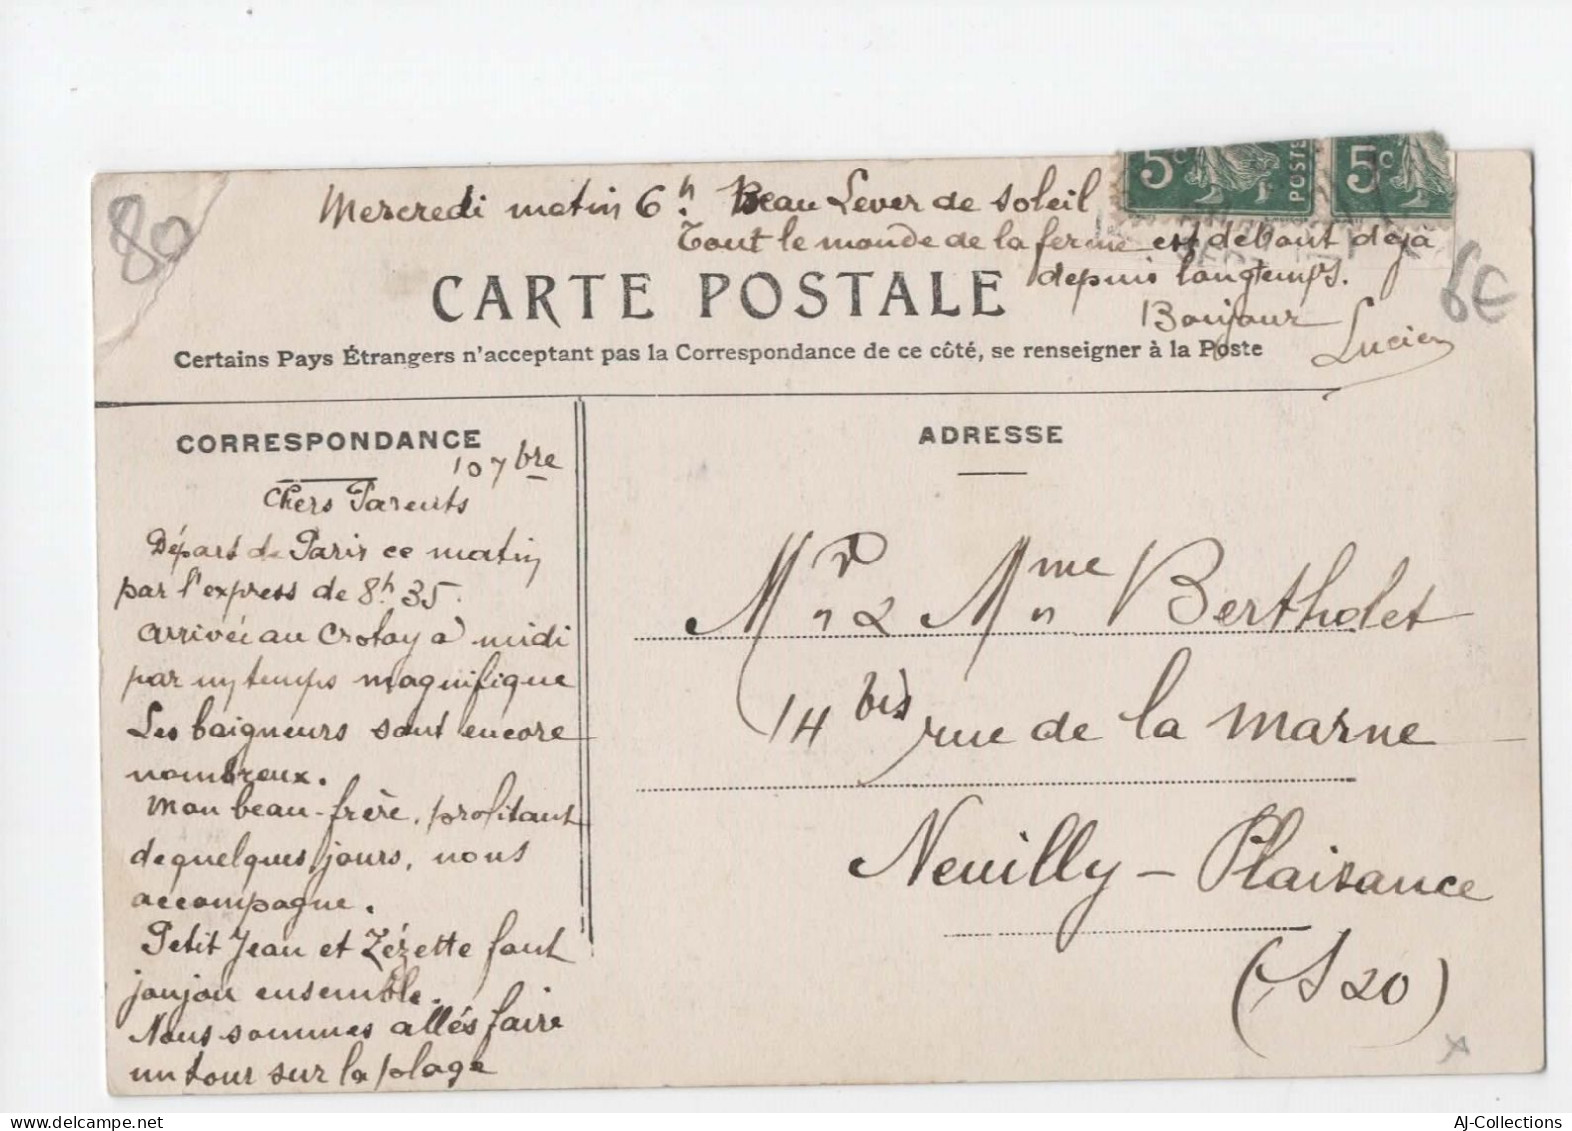 80
Mercredi matin 6 h. Beau Lever de soleil
Tout le monde de la ferme est debout déjà
depuis longtemps.
Bonjour Lucien
5c POSTES 5c
6€
CARTE POSTALE
Certains Pays Étrangers n'acceptant pas la Correspondance de ce côté, se renseigner à la Poste
CORRESPONDANCE
10 7bre
Chers Parents
Départ de Paris ce matin
par l'express de 8h 35.
arrivée au Crotoy à midi
par un temps magnifique
Les baigneurs sont encore
nombreux.
Mon beau-frère, profitant
de quelques jours, nous
accompagne.
Petit Jean et Zézette font
joujou ensemble.
Nous sommes allés faire
un tour sur la plage
ADRESSE
Mr & Mme Bertholet
14 bis rue de la Marne
Neuilly - Plaisance
(S & O)
AJ-Collections